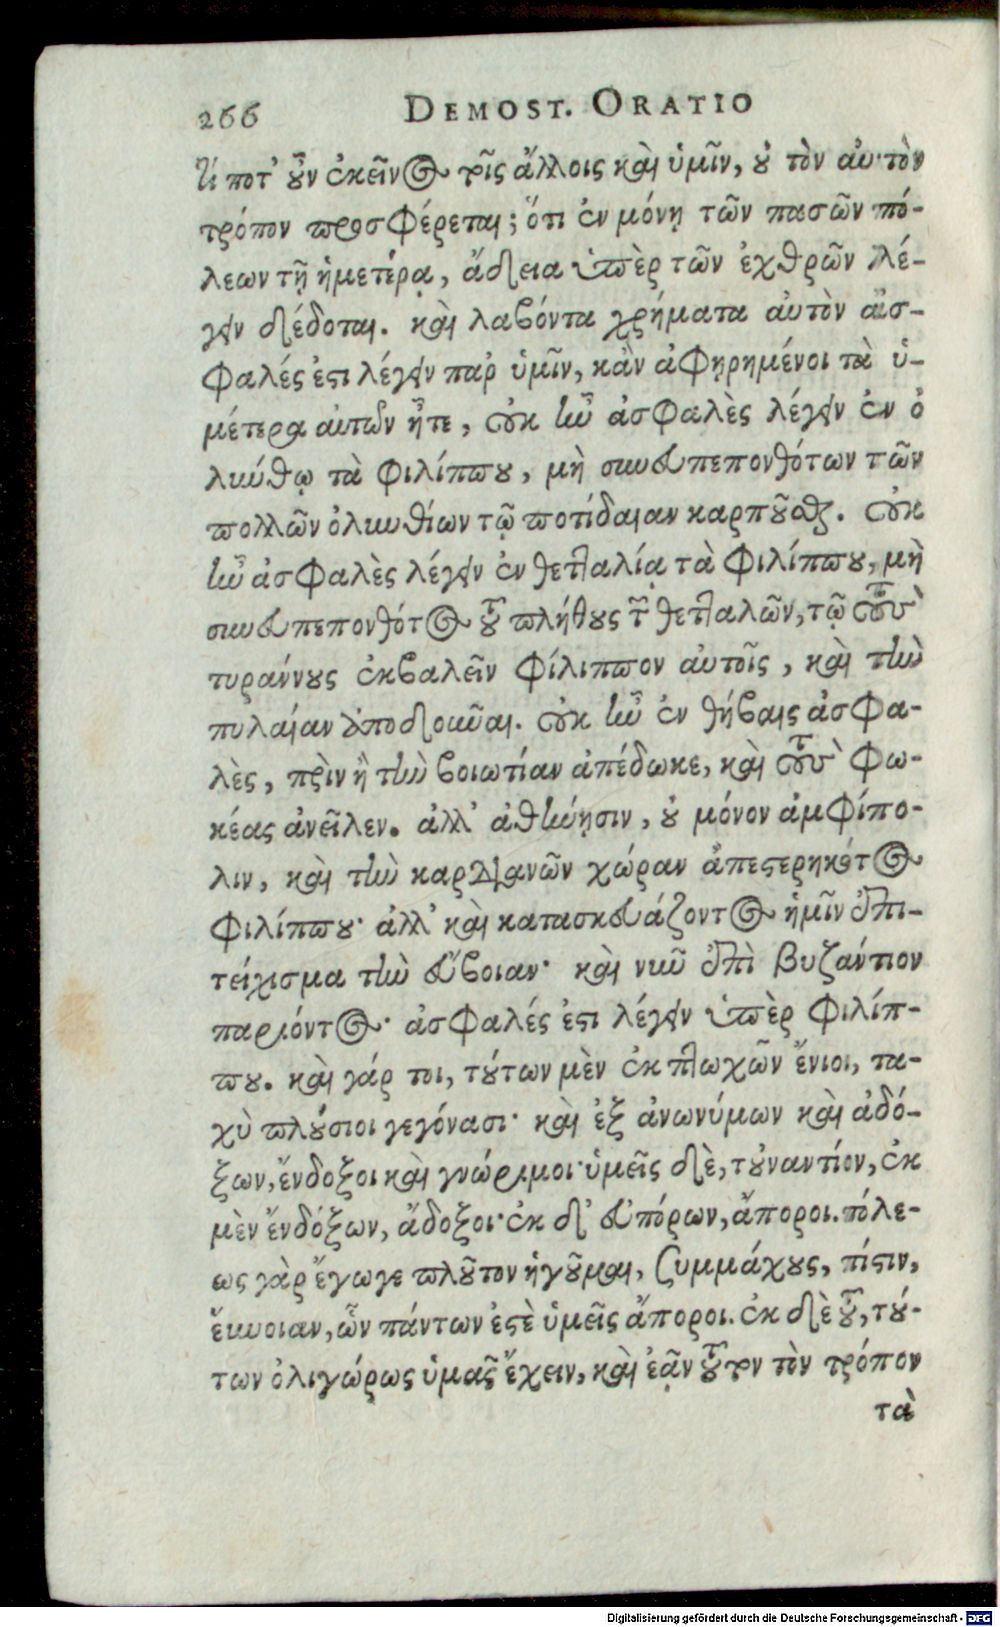 266 DEMOST. ORATIO
τί ποτ' οὖν ἐκεῖνος τοῖς ἄλλοις καὶ ὑμῖν, οὐ τὸν αὐτὸν
τρόπον προσφέρεται; ὅτι ἐν μόνῃ τῶν πασῶν πό-
λεων τῇ ἡμετέρᾳ, ἄδεια ὑπὲρ τῶν ἐχθρῶν λέ-
γειν δέδοται. καὶ λαβόντα χρήματα αὐτὸν ἀσ-
φαλές ἐστι λέγειν παρ' ὑμῖν, κἂν ἀφῃρημένοι τὰ ὑ-
μέτερα αὐτῶν ἦτε, οὐκ ἦν ἀσφαλὲς λέγειν ἐν ὀ
λιύθῳ τὰ Φιλίππου, μὴ σὺν εὖ πεπονθότων τῶν
πολλῶν ὀλυνθίων τῷ ποτίδαιαν καρποῦσθαι. οὐκ
ἦν ἀσφαλὲς λέγειν ἐν θετταλίᾳ τὰ Φιλίππου, μὴ
σὺν εὖ πεπονθότος τοῦ πλήθους τῶν θετταλῶν, τῷ τοὺς
τυράννους ἐκβαλεῖν Φίλιππον αὐτοῖς, καὶ τὴν
πυλαίαν ἀποδοῦναι. οὐκ ἦν ἐν θήβαις ἀσφα-
λὲς, πρὶν ἢ τὴν βοιωτίαν ἀπέδωκε, καὶ τοὺς Φω-
κέας ἀνεῖλεν. ἀλλ' ἀθήνῃσιν, οὐ μόνον ἀμφίπο-
λιν, καὶ τὴν καρδιανῶν χώραν ἀπεστερηκότος
Φιλίππου· ἀλλὰ καὶ κατασκευάζοντος ἡμῖν ἐπι-
τείχισμα τὴν εὔβοιαν· καὶ νῦν ἐπὶ βυζάντιον
παριόντος· ἀσφαλές ἐστι λέγειν ὑπὲρ Φιλίπ-
που. καὶ γάρ τοι, τούτων μὲν ἐκ πτωχῶν ἔνιοι, τα-
χὺ πλούσιοι γεγόνασι· καὶ ἐξ ἀνωνύμων καὶ ἀδό-
ξων, ἔνδοξοι καὶ γνώριμοι· ὑμεῖς δὲ, τοὐναντίον, ἐκ
μὲν ἐνδόξων, ἄδοξοι· ἐκ δ' εὐπόρων, ἄποροι. πόλε-
ως γὰρ ἔγωγε πλοῦτον ἡγοῦμαι, συμμάχους, πίστιν,
εὔνοιαν, ὧν πάντων ἐστὲ ὑμεῖς ἄποροι. ἐκ δὲ τοῦ, τού-
των ὀλιγώρως ὑμᾶς ἔχειν, καὶ ἐᾷν τοῦτον τὸν τρόπον
τὰ
Digitalisierung gefördert durch die Deutsche Forschungsgemeinschaft - DFG